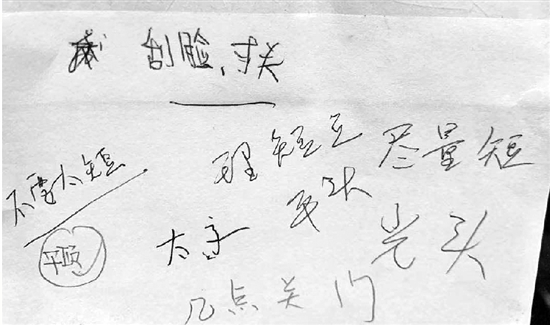 刮脸,寸关
不要太短
理短点 尽量短
平头
平顶
太高 光头
几点关门